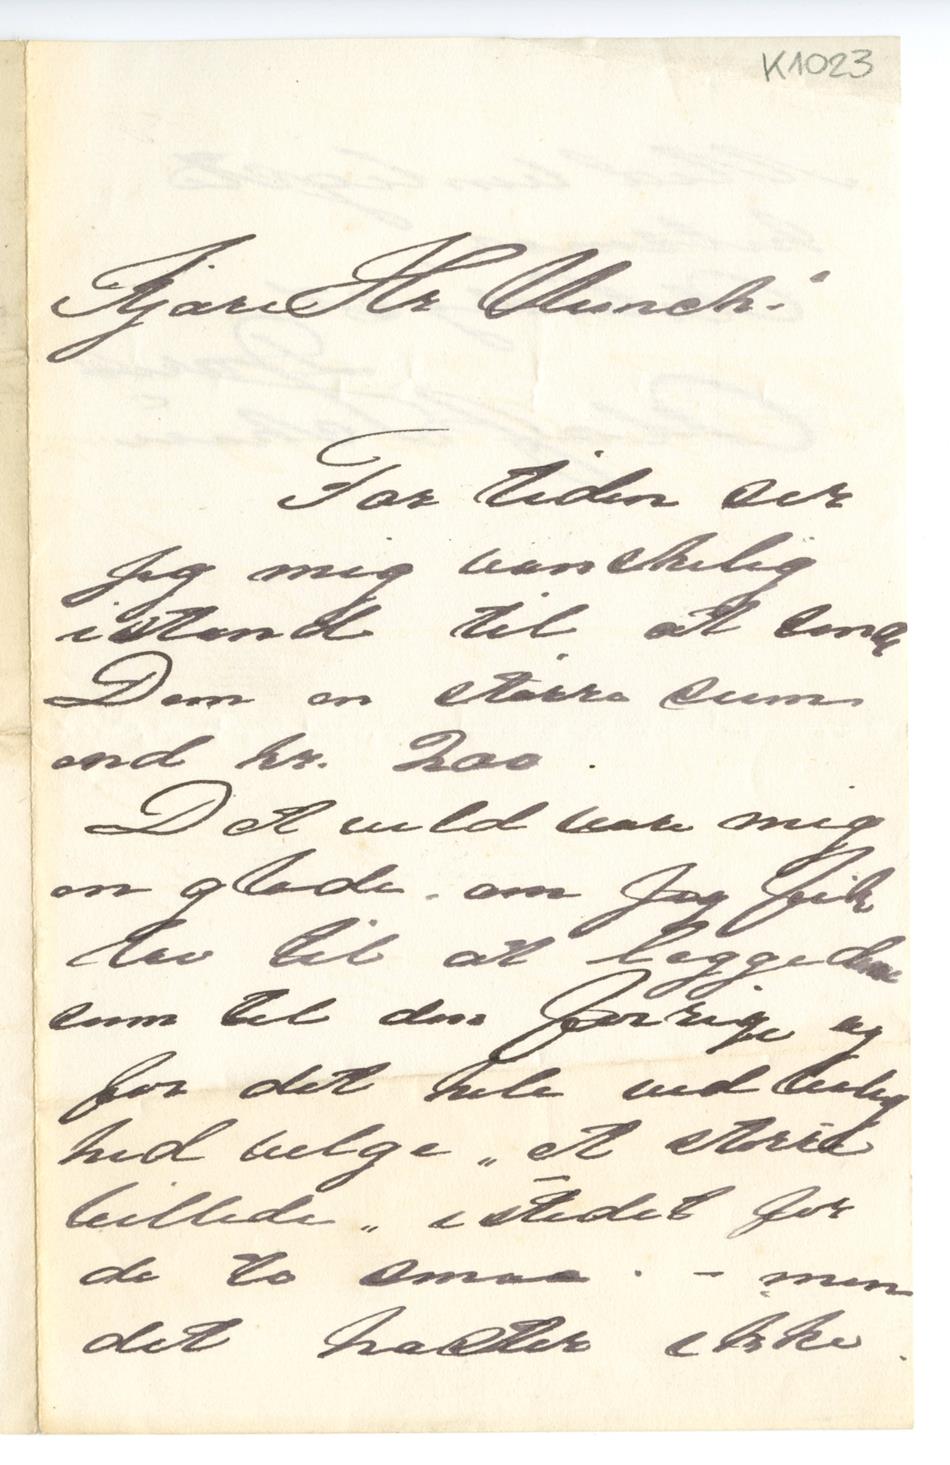 K1023
Kjære Hr Munch!
For tiden ser
jeg mig vanskelig
istand til at sende
Dem en større sum
end kr. 200.
Det vild være mig
en glæde. om jeg fik
lov til at lægge denne
sum til den forrige og
for det hele ved leilig
hed velge „et større
billede„ istedet for
de to smaa. – men
det haster ikke.